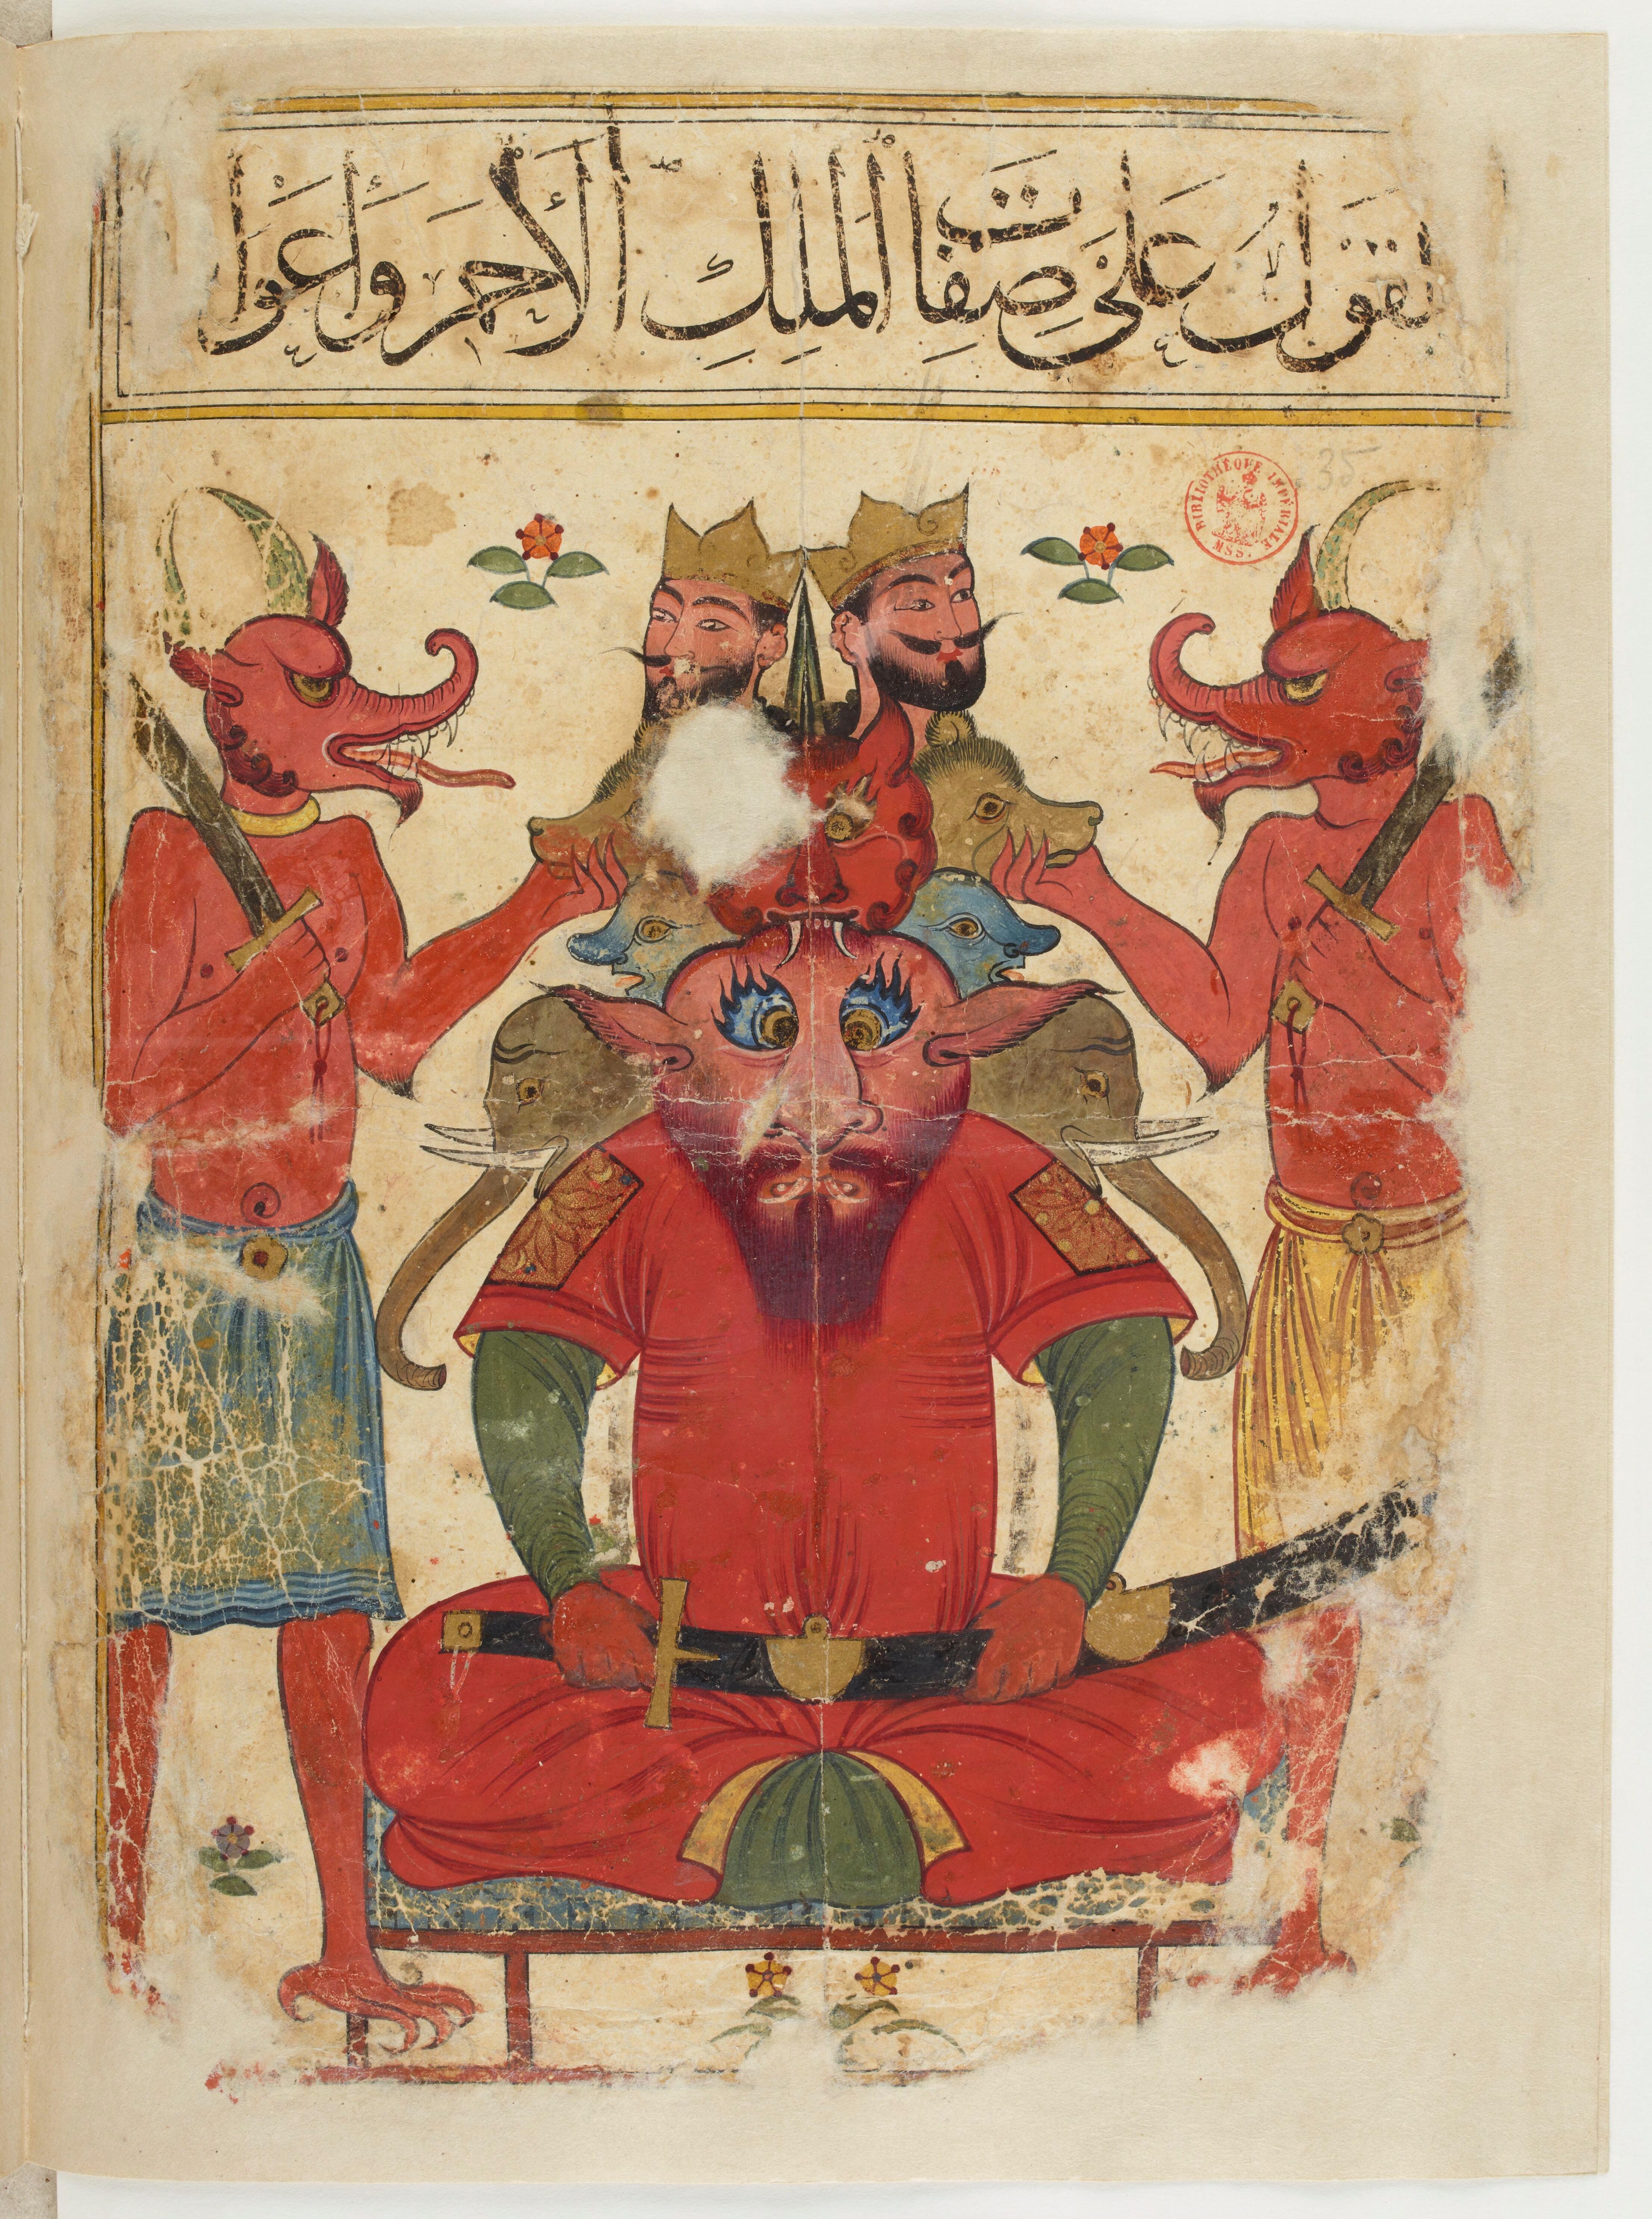 القول على صفات الملك الأحمر وأعوا
35
BIBLIOTHÈQUE IMPÉRIALE MSS.